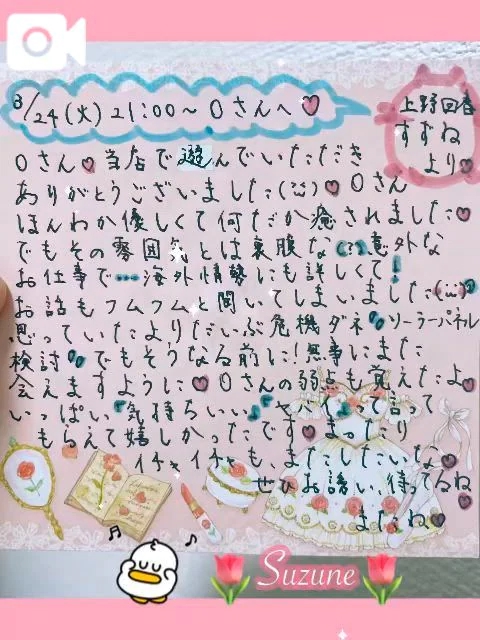 3/24(火)21:00〜Oさんへ♡
上野回春
すずね
より♡
Oさん♡当店で遊んでいただき
ありがとうございました(¨̮)♡Oさん
ほんわか優しくて何だか癒されました♡
でもその雰囲気とは裏腹な(?)意外な
お仕事で…海外情勢にも詳しくて!
お話もフムフムと聞いてしまいました(¨̮)
思っていたよりだいぶ危機ダネ。ソーラーパネル
検討。でもそうなる前に!無事にまた
会えますように♡Oさんの弱点も覚えたよ♡
いっぱい『気持ちいい』って言って
もらえて嬉しかったです♡まったり
イチャイチャも、またしたいな♡
ぜひお誘い、待ってるね♡
またね♡
Suzune